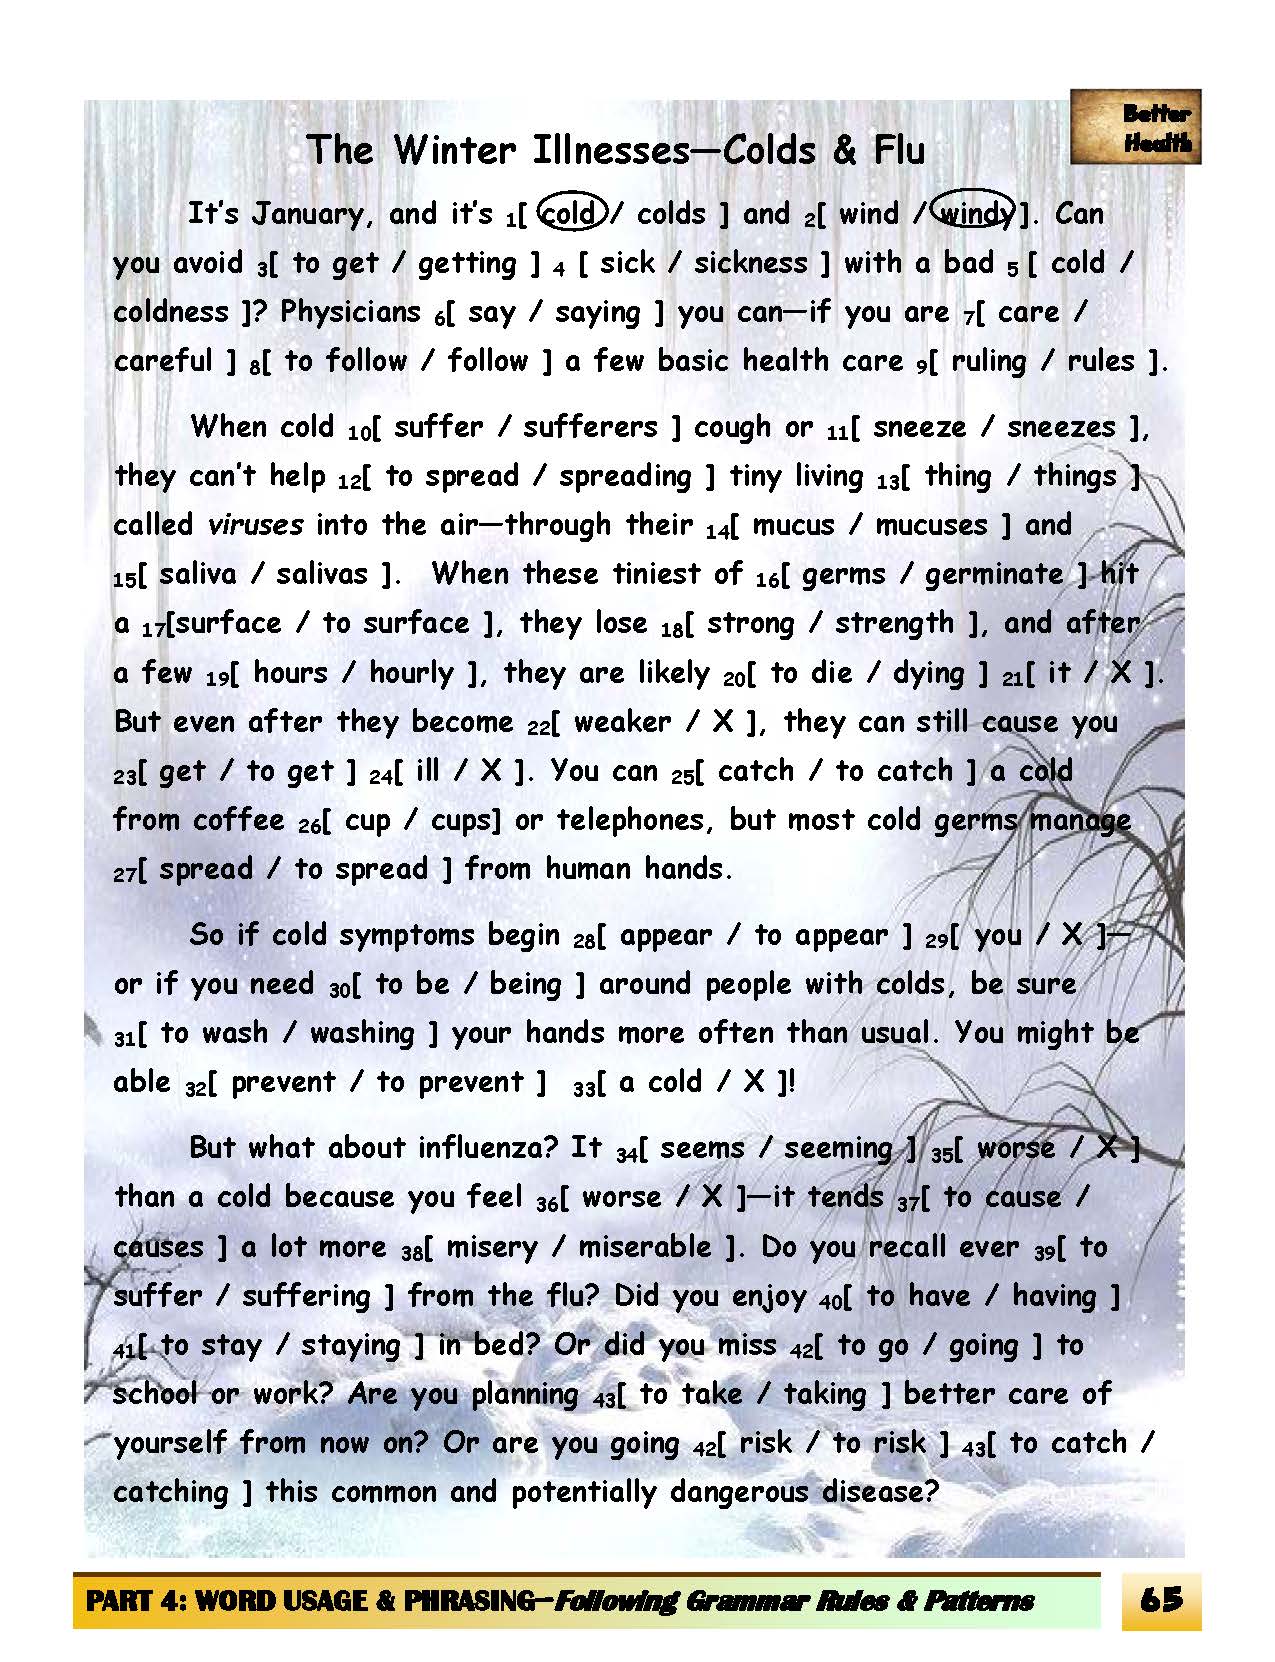 Better
Health
The Winter Illnesses—Colds & Flu
It's January, and it's 1[ cold / colds ] and 2[ wind / windy ]. Can
you avoid 3[ to get / getting ] 4 [ sick / sickness ] with a bad 5 [ cold /
coldness ]? Physicians 6[ say / saying ] you can—if you are 7[ care /
careful ] 8[ to follow / follow ] a few basic health care 9[ ruling / rules ].
When cold 10[ suffer / sufferers ] cough or 11[ sneeze / sneezes ],
they can't help 12[ to spread / spreading ] tiny living 13[ thing / things ]
called viruses into the air—through their 14[ mucus / mucuses ] and
15[ saliva / salivas ]. When these tiniest of 16[ germs / germinate ] hit
a 17[surface / to surface ], they lose 18[ strong / strength ], and after
a few 19[ hours / hourly ], they are likely 20[ to die / dying ] 21[ it / X ].
But even after they become 22[ weaker / X ], they can still cause you
23[ get / to get ] 24[ ill / X ]. You can 25[ catch / to catch ] a cold
from coffee 26[ cup / cups] or telephones, but most cold germs manage
27[ spread / to spread ] from human hands.
So if cold symptoms begin 28[ appear / to appear ] 29[ you / X ]—
or if you need 30[ to be / being ] around people with colds, be sure
31[ to wash / washing ] your hands more often than usual. You might be
able 32[ prevent / to prevent ] 33[ a cold / X ]!
But what about influenza? It 34[ seems / seeming ] 35[ worse / X ]
than a cold because you feel 36[ worse / X ]—it tends 37[ to cause /
causes ] a lot more 38[ misery / miserable ]. Do you recall ever 39[ to
suffer / suffering ] from the flu? Did you enjoy 40[ to have / having ]
41[ to stay / staying ] in bed? Or did you miss 42[ to go / going ] to
school or work? Are you planning 43[ to take / taking ] better care of
yourself from now on? Or are you going 42[ risk / to risk ] 43[ to catch /
catching ] this common and potentially dangerous disease?
PART 4: WORD USAGE & PHRASING—Following Grammar Rules & Patterns
65